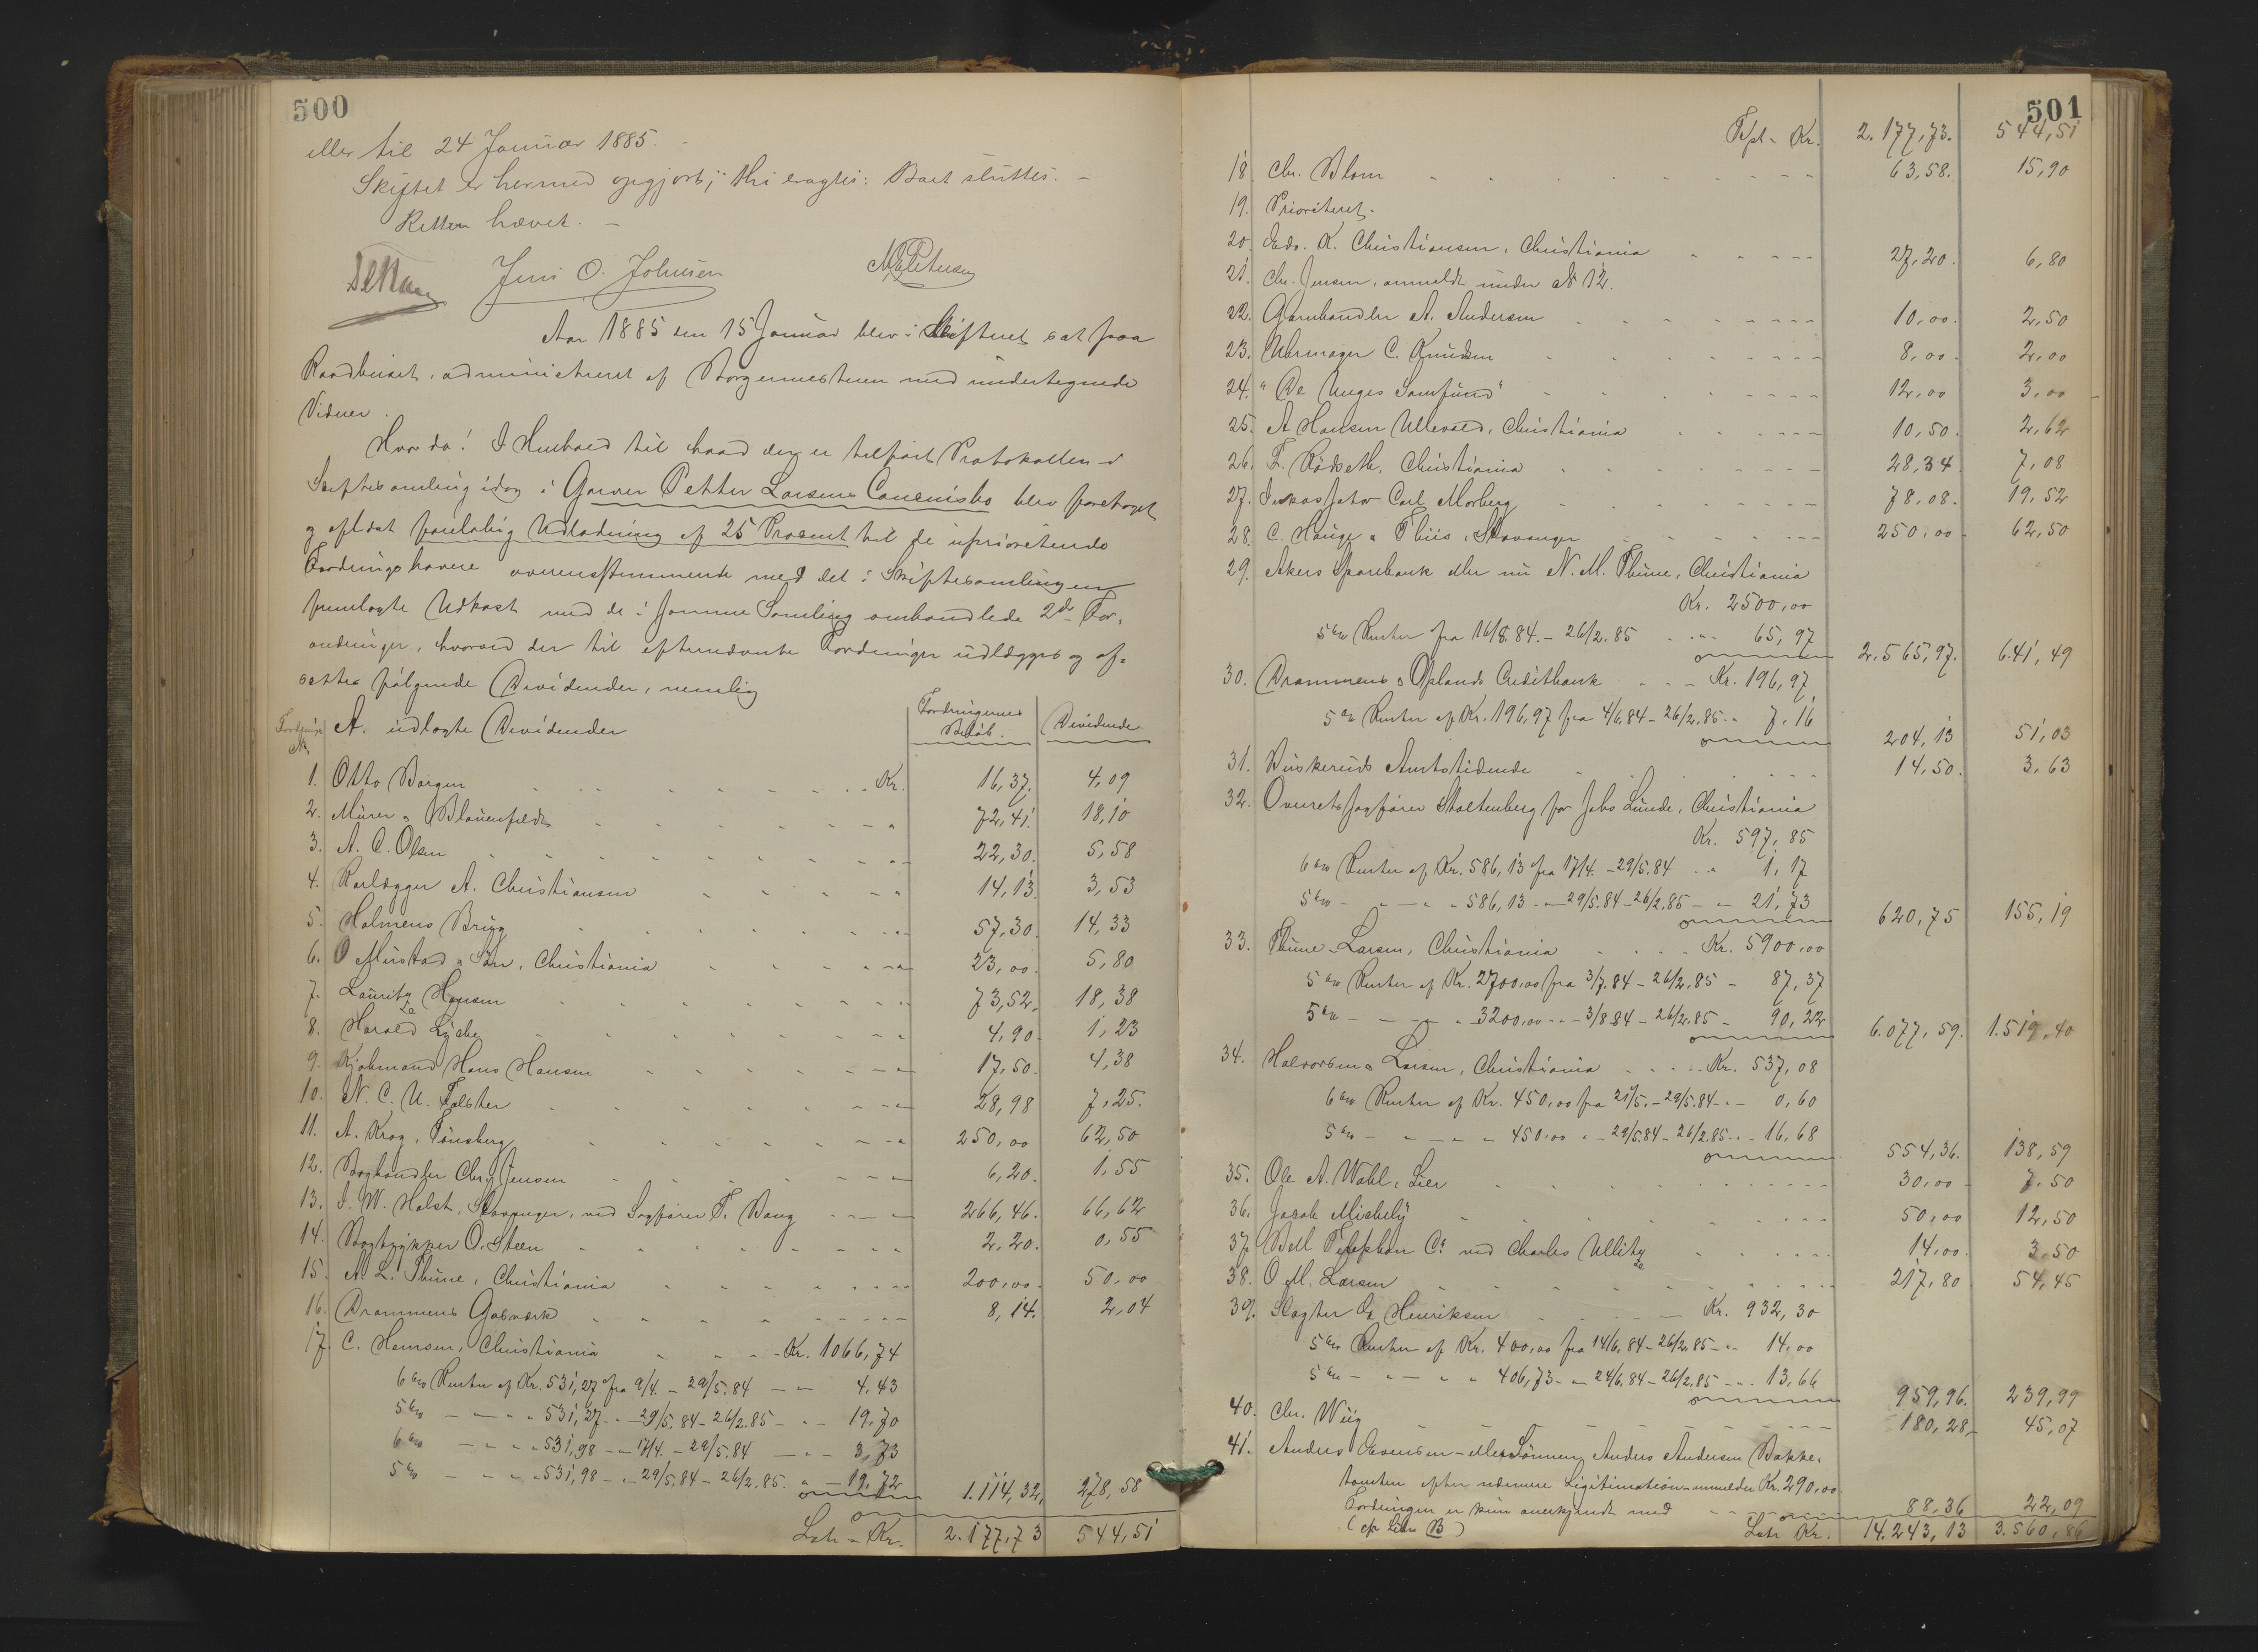 500
eller til 24 Januar 1885. -
Skiftet er hermed opgjort; thi eragtes: Boet sluttes. -
Retten hævet. -
Jens O. Johnsen
Aar 1885 den 15 Januar blev i Skifteret sat paa
Raadhuset, administreret af Borgermesteren med undertegnede
Vidner.
Hvorda! I Henhold til hvad der er tilført Protokollen
Skiftesamling idag i Garver Petter Larsens blev foretaget
og afsluttet foreløbig Udlodning af 25 Procent til de uprioriterede
Fordringshavere overensstemmende med det i Skiftesamlingen
fremlagte Udkast med de i samme Samling omhandlede 2de For-
andringer, hvorved der til efternævnte Fordringer udlægges og af-
sættes følgende Dividender, nemlig
Fordrings No A. udlagte Dividender Fordringernes Beløb. Dividende
1. Otto Borgen Kr. 16,37. 4,09
2. Mürer & Blauenfeldt 72,41. 18,10
3. A. C. Olsen 22,30. 5,58
4. A. Christiansen 14,13. 3,53
5. Holmens Brug 57,30. 14,33
6. O Mustad & Søn, Christiania 23,00. 5,80
7. Lauritz Hansen 73,52. 18,38
8. Harald Lyche 4,90. 1,23
9. Kjøbmand Hans Hansen 17,50. 4,38
10. N. C. U. Falster 28,98 7,25.
11. A. Krog, Tønsberg 250,00 62,50
12. Boghandler Chr. Jensen 6,20. 1,55
13. I. W. Holst, Stavanger, ved Sagfører F. Bang 266,46. 66,62
14. Bogtrykker O. Steen 2,20. 0,55
15. A. L. Thune, Christiania 200,00. 50,00
16. Drammens Gasværk 8,14. 2,04
17. C. Hemsen, Christiania Kr. 1066,74
6 % Renter af Kr. 531,27 fra 9/4. - 29/5.84 - " 4,43
5 % - " - " " 531,27 " - 29/5.84 - 26/2.85 - " 19,70
6 % - " " " 531,98 - " 17/4. - 29/5.84 - " 3,73
5 % - " " " 531,98 - " 29/5.84 - 26/2.85. " - 19,72 1.114,32. 278,58
Latr - Kr. 2.177,73 544,51
501
Tspt - Kr. 2.177,73. 544,51
18. Chr. Blom 63,58. 15,90
19. Prioriteret.
20. Edv. K. Christiansen, Christiania 27,20. 6,80
21. Chr. Jensen, anmeldt under No 12.
22. Garnhandler A. Andersen 10,00. 2,50
23. Uhrmager C. Knudsen 8,00. 2,00
24. "De Unges Samfund" 12,00 3,00
25. A Hansen Ullevold, Christiania 10,50. 2,62
26. F. Rødseth, Christiania 28,34 7,08
27. Inkassator Carl Morberg 78,08. 19,52
28. C. Hauge & Thiis, Stavanger 250,00 62,50
29. Akers Sparebank eller nu N. M. Thune, Christiania
Kr. 2500,00
5 % Renter fra 16/8.84. - 26/2.85 65,97 2.565,97. 641,49
30. Drammens & Oplands Creditbank Kr. 196,97
5 % Renter af Kr. 196,97 fra 4/6.84 - 26/2.85 - " 7,16 204,13 51,03
31. Buskeruds Amtstidende 14,50. 3,63
32. Overretssagfører Stoltenberg for Jobs Lunde, Christiania
Kr. 597,85
6 % Renter af Kr. 586,13 fra 17/4. - 29/5.84 1,17
5 % - " - " " 586,13 - " 29/5.84 - 26/2.85 - " 21,73 620,75 155,19
33. Thune-Larsen, Christiania Kr. 5900,00
5 % Renter af Kr. 2700,00 fra 3/7.84 - 26/2.85 - 87,37
5 % - " - " 3200,00 " - 3/8.84 - 26/2.85 - 90,22 6.077,59. 1.519,40
34. Halvorsen & Larsen, Christiania Kr. 537,08
6 % Renter af Kr. 450,00 fra 21/5. - 29/5.84 - " - 0,60
5 % - " - " " 450,00 " - 29/5.84 - 26/2.85 - " - 16,68 554,36. 138,59
35. Ole A. Wahl, Lier 30,00 7,50
36. Jacob Michely 50,00 12,50
37. Bell Telephon Co ved Charles Ullitz 14,00. 3,50
38. O M. Larsen 217,80 54,45
39. Slagter Henriksen Kr. 932,30
5 % Renter af Kr. 400,00 fra 14/6.84 - 26/2.85 - " 14,00
5 % - " - " " 406,73 - " 24/6.84 - 26/2.85 - " 13,66 959,96. 239,99
40. Chr. Wiig 180,28 45,07
41. Anders Evensen - eller Sønnen Anders Andersen Bakke-
tomten efter nærmere Legitimation - anmeldes Kr. 290,00.
Fordringen er kun anerkjendt med 88,36 22,09
(cfr Litr. B) Latr Kr. 14.243,13 3.560,86